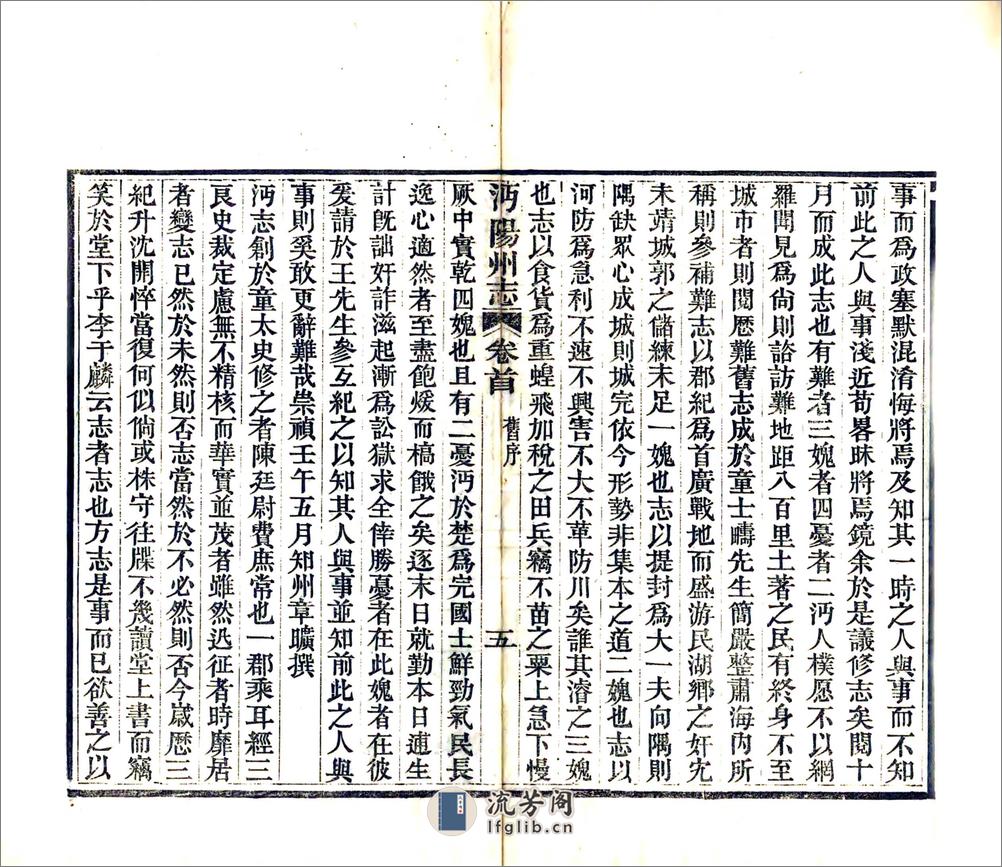 事而爲政塞默混淆悔將焉及知其一時之人與事而不知
前此之人與事淺近苟畧昧將焉鏡余於是議修志矣閱十
月而成此志也有難者三媿者四憂者二沔人樸愿不以網
羅聞見爲尚則諮訪難地距八百里土著之民有終身不至
城市者則閱歷難舊志成於童士疇先生簡嚴整肅海內所
稱則參補難志以郡紀爲首廣戰地而盛游民湖鄉之奸宄
未靖城郭之儲練未足一媿也志以提封爲大一夫向隅則
隅缺眾心成城則城完依今形勢非集本之道二媿也志以
河防爲急利不速不興害不大不革防川矣誰其濬之三媿
也志以食貨爲重蝗飛加稅之田兵竊不苗之粟上急下慢
沔陽州志 卷首 舊序 五
厥中實乾四媿也且有二憂沔於楚爲完國士鮮勁氣民長
逸心適然者至盡飽煖而槁餓之矣逐末日就勤本日逋生
計旣詘奸詐滋起漸爲訟獄求全倖勝憂者在此媿者在彼
爰請於王先生參互紀之以知其人與事並知前此之人與
事則奚敢更辭難哉崇禎壬午五月知州章曠撰
沔志創於童太史修之者陳廷尉費庶常也一郡乘耳經三
良史裁定慮無不精核而華實並茂者雖然迅征者時靡居
者變志已然於未然則否志當然於不必然則否今嵗歷三
紀升沈開悴當復何似倘或株守往牒不幾讀堂上書而竊
笑於堂下乎李于麟云志者志也方志是事而已欲善之以
流芳阁
lfglib.cn